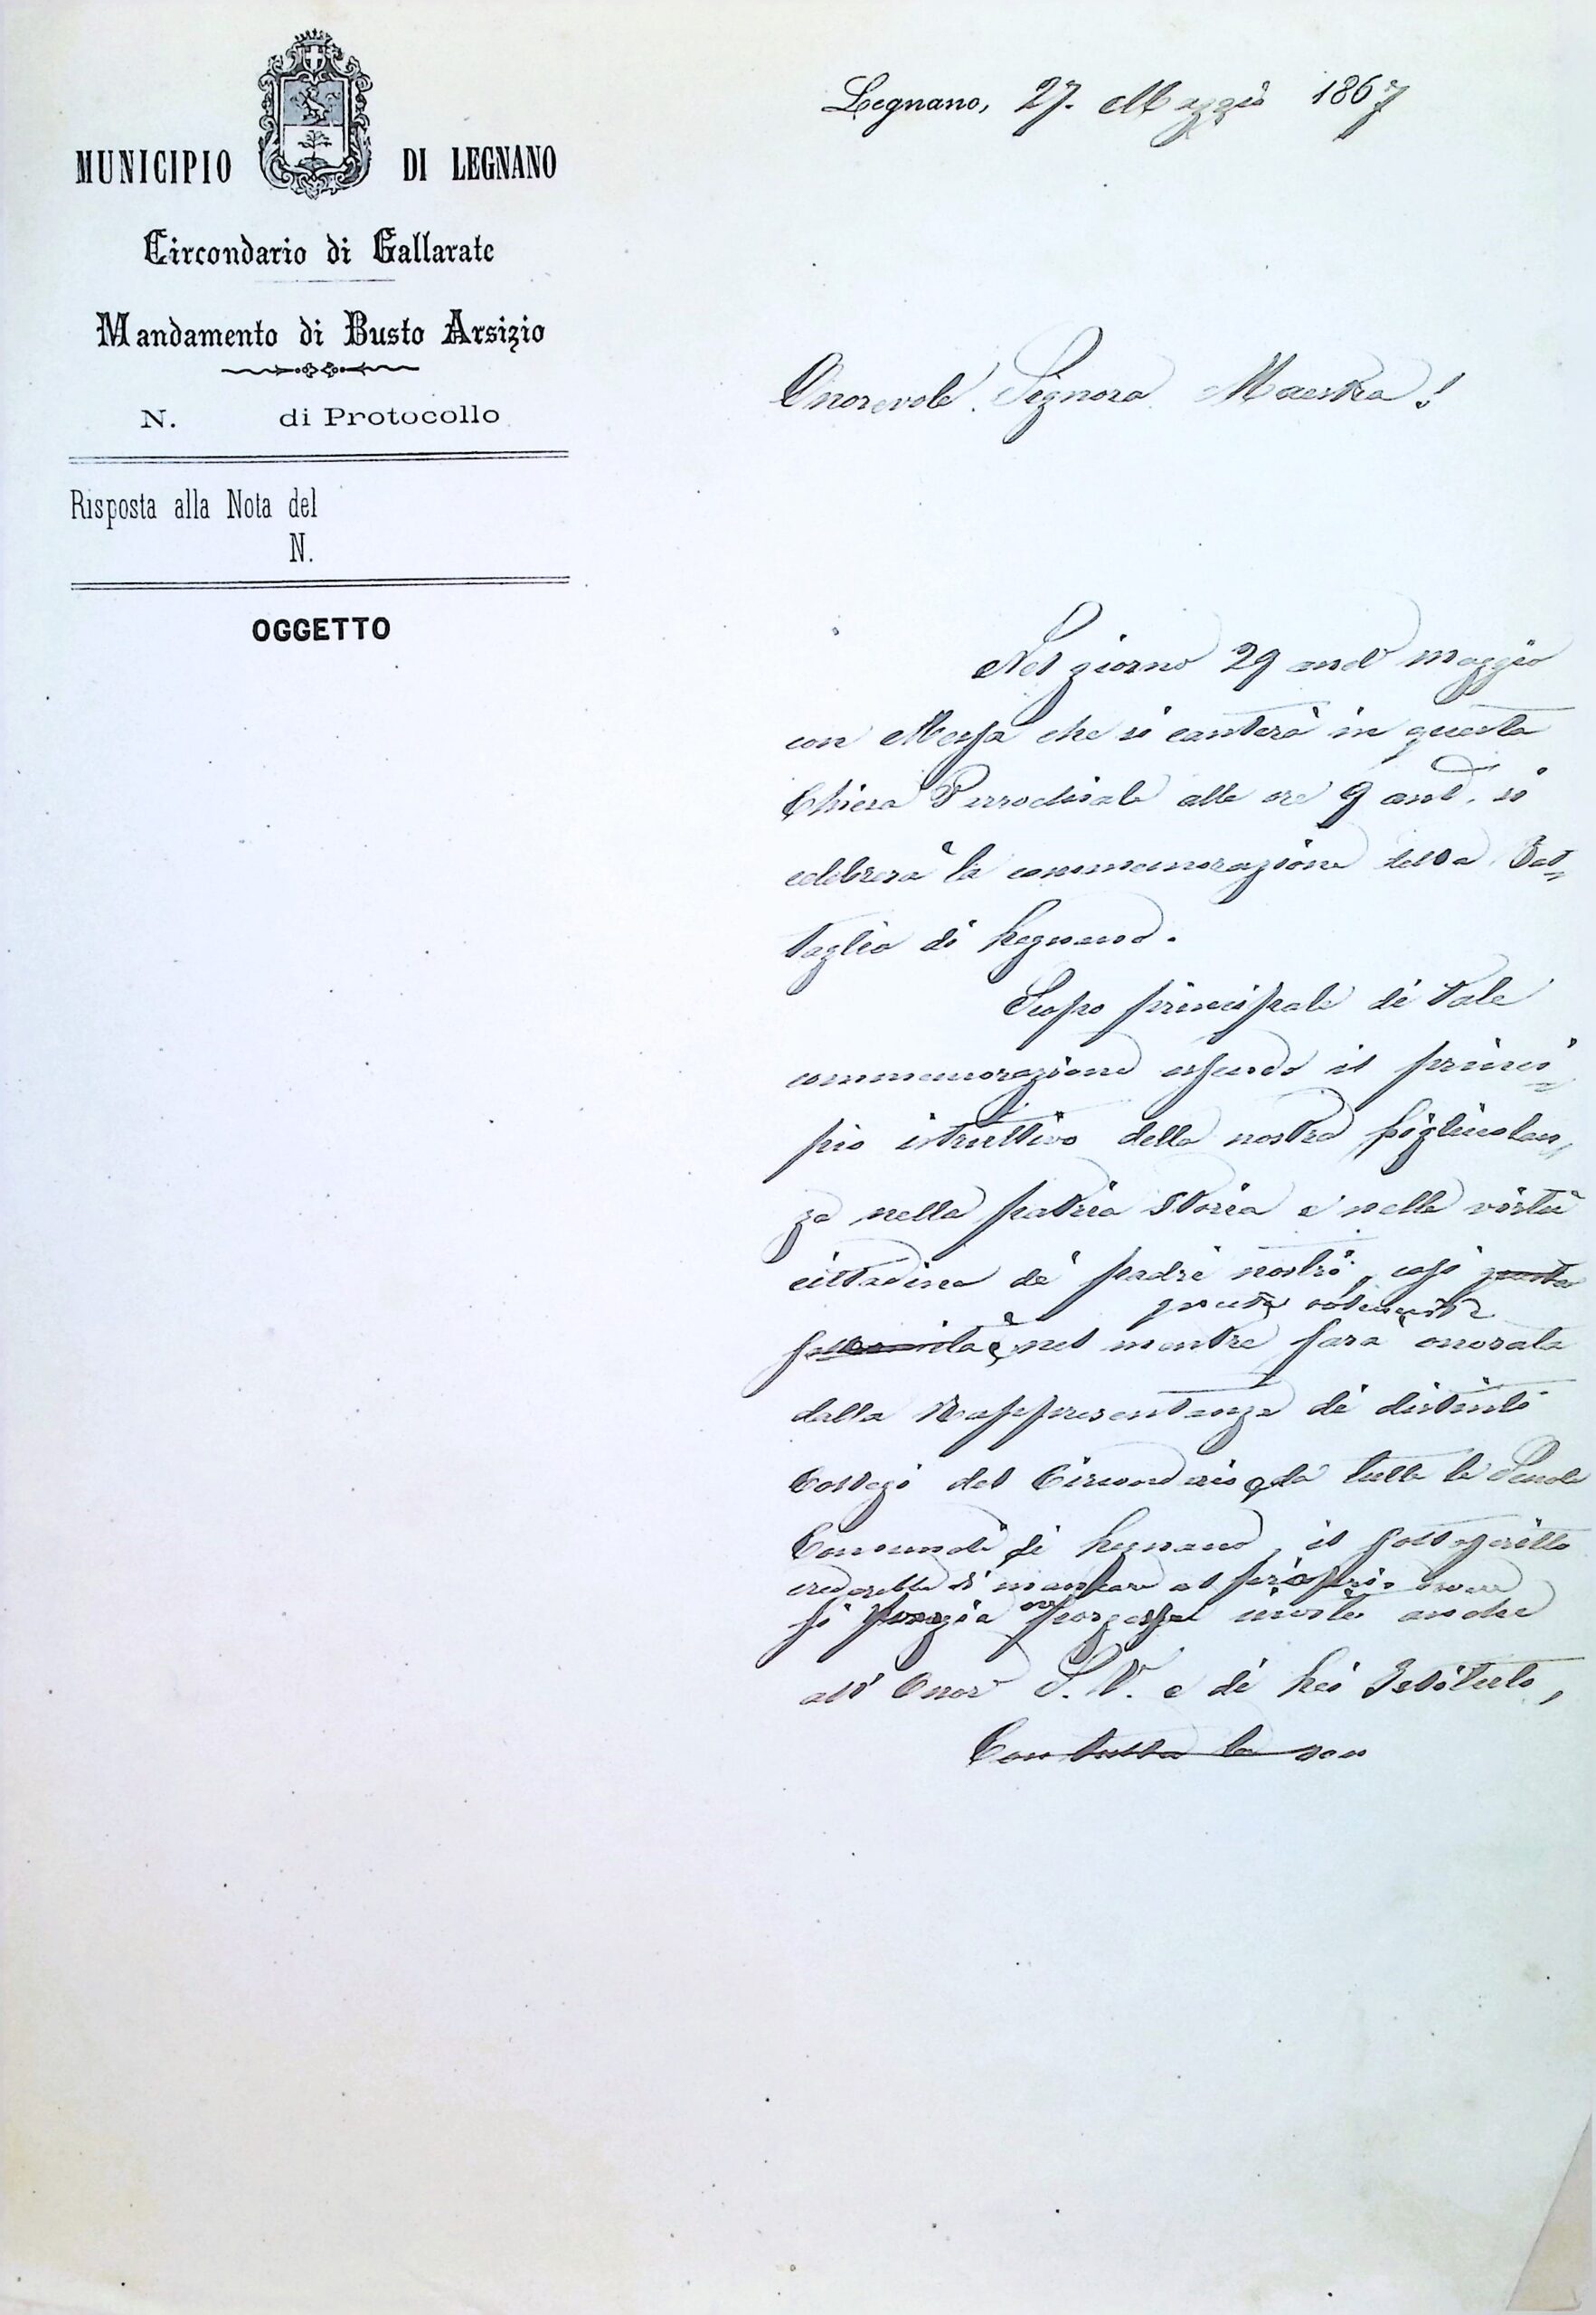 MUNICIPIO DI LEGNANO
Circondario di Gallarate
Mandamento di Busto Arsizio
N. di Protocollo
Risposta alla Nota del
N.
OGGETTO
Legnano, 27. Maggio 1867
Onorevole Signora Maestra!
Nel giorno 29 and.e maggio
con Messa che si canterà in questa
Chiesa Parrochiale alle ore 9 ant. si
celebrerà la commemorazione della Bat„
taglia di Legnano.
Scopo principale di tale
commemorazione essendo il princi„
pio istruttivo della nostra figliuolan„
za nella patria storia e nelle virtù
cittadine de' padri nostri, così questa
questa
nel mentre sarà onorata
dalla Rappresentanza di distinti
Collegi del Circondario e da tutte le Scuole
Comunali di Legnano, il sottoscritto
crederebbe di mancare al proprio dovere
si porgesse invito anche
all' Onor. S. V. e di Lei Istituto,
Con tutta la